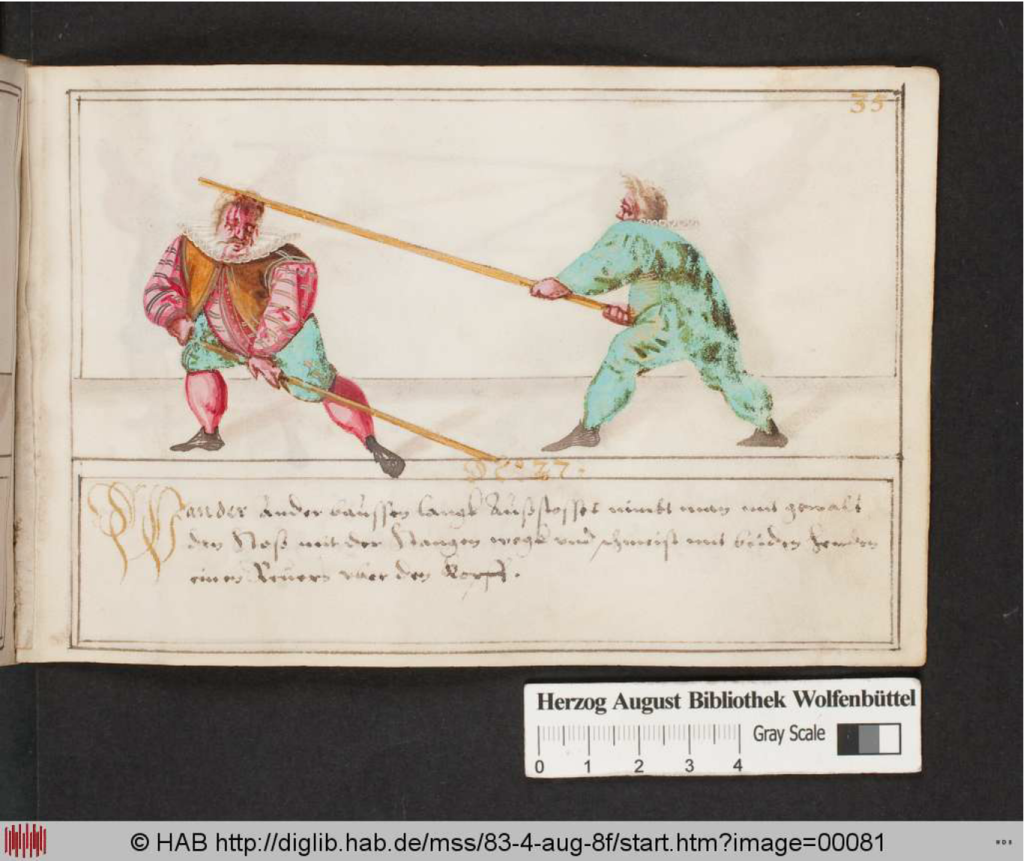 35
N° 37.
Wan der Ander daussen lang Außstosset nimbt man mit gewalt
den Stoß mit der Stangen wegk und schmeist mit beiden henden
einen Revers uber den Kopff.
Herzog August Bibliothek Wolfenbüttel
Gray Scale
0 1 2 3 4
© HAB http://diglib.hab.de/mss/83-4-aug-8f/start.htm?image=00081